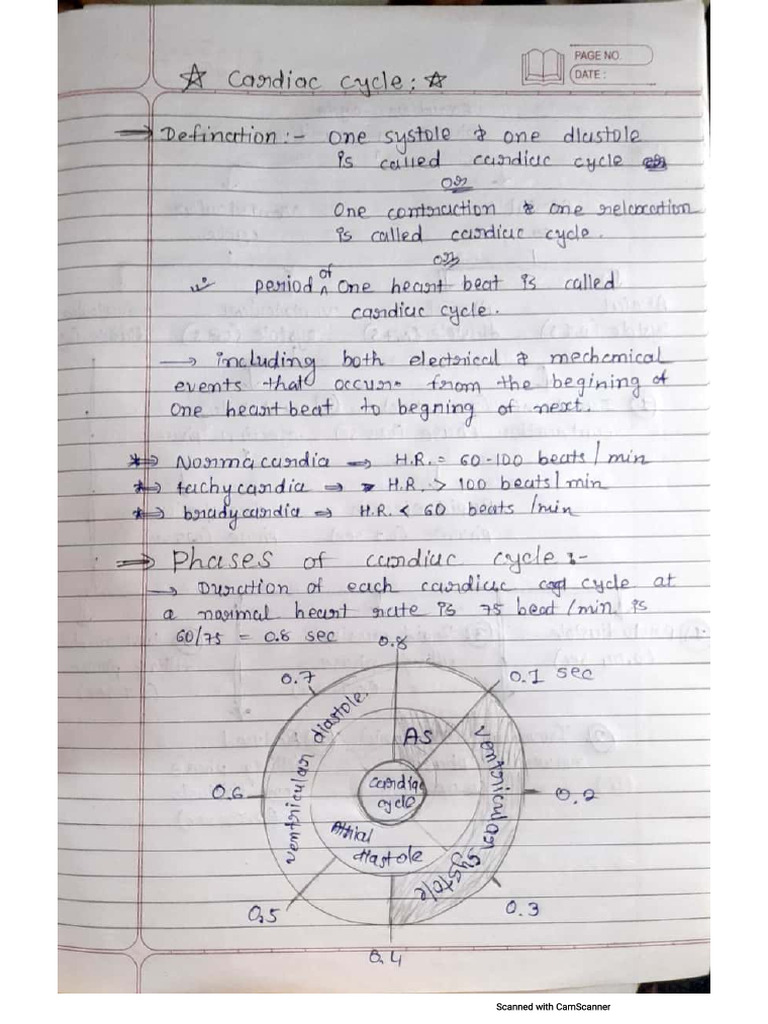 PAGE NO.
DATE :
☆ Cardiac cycle : ☆
⇒ Defination :- One systole & one diastole
is called cardiac cycle
or
One contraction & one relaxation
is called cardiac cycle.
or
period of one heart beat is called
cardiac cycle.
→ including both electrical & mechemical
events that occurs from the begining of
one heartbeat to begning of next.
*⇒ Normacardia → H.R. = 60-100 beats / min
*⇒ tachycardia → H.R. > 100 beats / min
*⇒ bradycardia → H.R. < 60 beats /min
⇒ Phases of cardiac cycle :-
→ Duration of each cardiac cycle at
a normal heart rate is 75 beat /min is
60/75 = 0.8 sec
0.8
0.7
0.1 sec
ventricular diastole.
AS
ventricular systole
cardiac
cycle
0.6
0.2
Atrial
diastole
0.5
0.3
0.4
Scanned with CamScanner